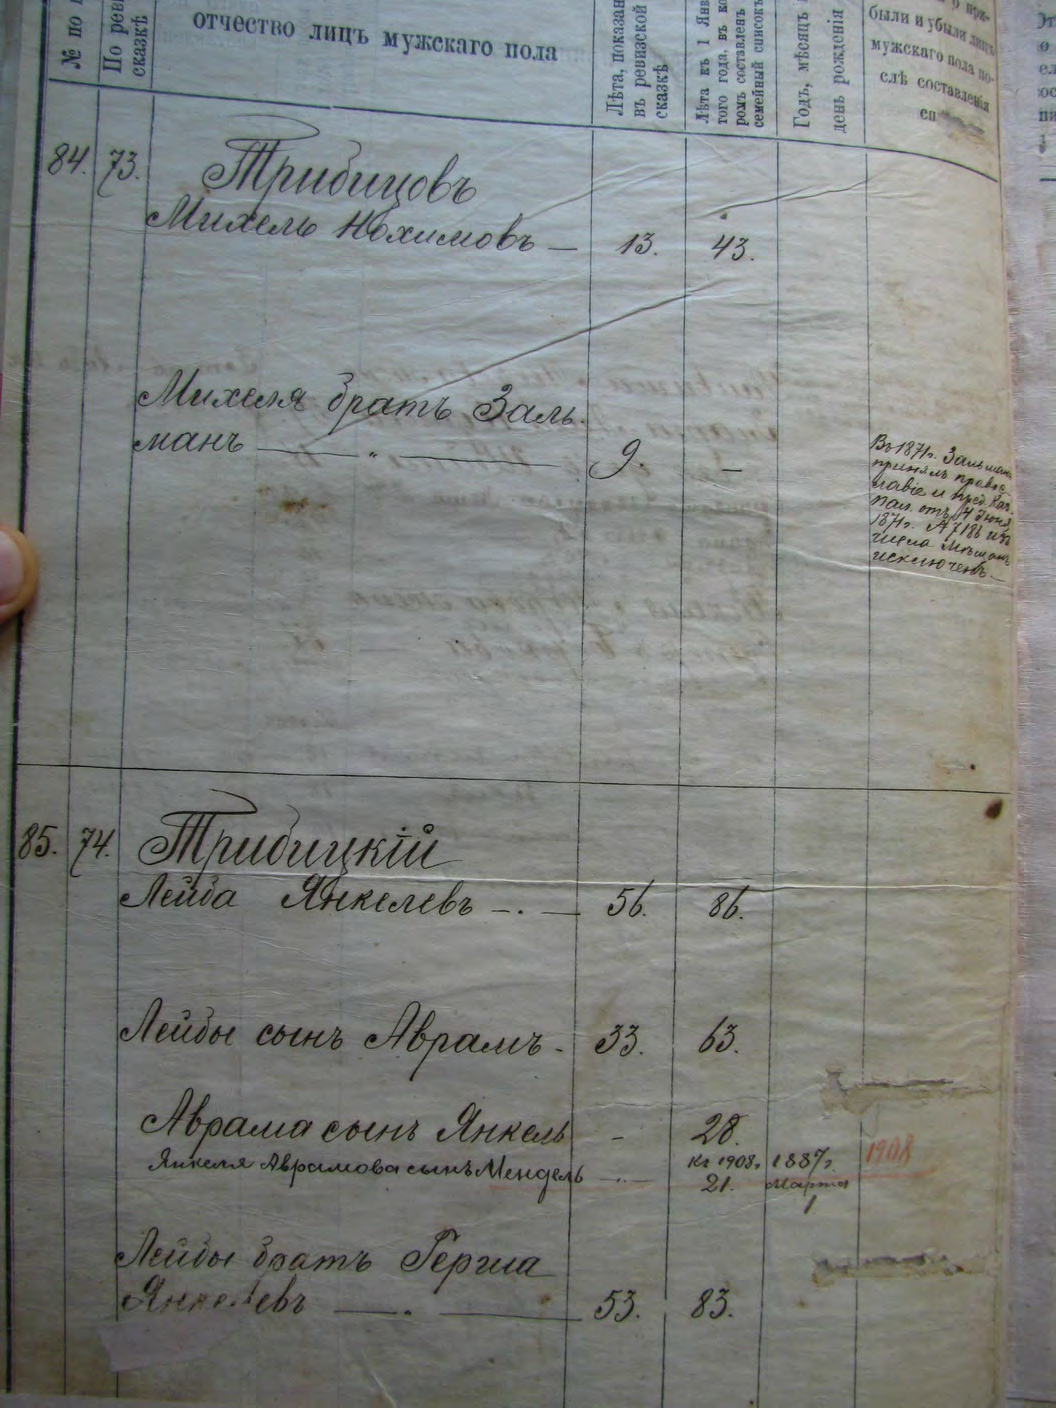 № по
По рев
сказкѣ
отчество лицъ мужскаго пола
Лѣта, показан
въ ревизской
сказкѣ
Лѣта къ 1 Янв
того года, въ ко
ромъ составленъ
семейный список
Годъ, мѣсяцъ
день рожденія
о при-
были и убыли лицъ
мужскаго пола по-
слѣ составленія
сп
84. 73. Трибицовъ
Михель Нохимовъ — 13. 43.
Михеля братъ Заль-
манъ — „ — 9. —
Въ 1871 г. Зальманъ
принялъ правос
лавіе и пред. Каз.
Пал. отъ 14 Іюня
1871 г. № 7186 изъ
числа Мѣщанъ
исключенъ —
85. 74. Трибицкій
Лейба Янкелевъ — . — 56. 86.
Лейбы сынъ Аврамъ - 33. 63.
Аврама сынъ Янкель - 28.
Янкеля Аврамова сынъ Мендель — . — къ 1908 г. 1887 г. 1908
21. Марта
1
Лейбы братъ Гершла
Янкелевъ — . — 53. 83.